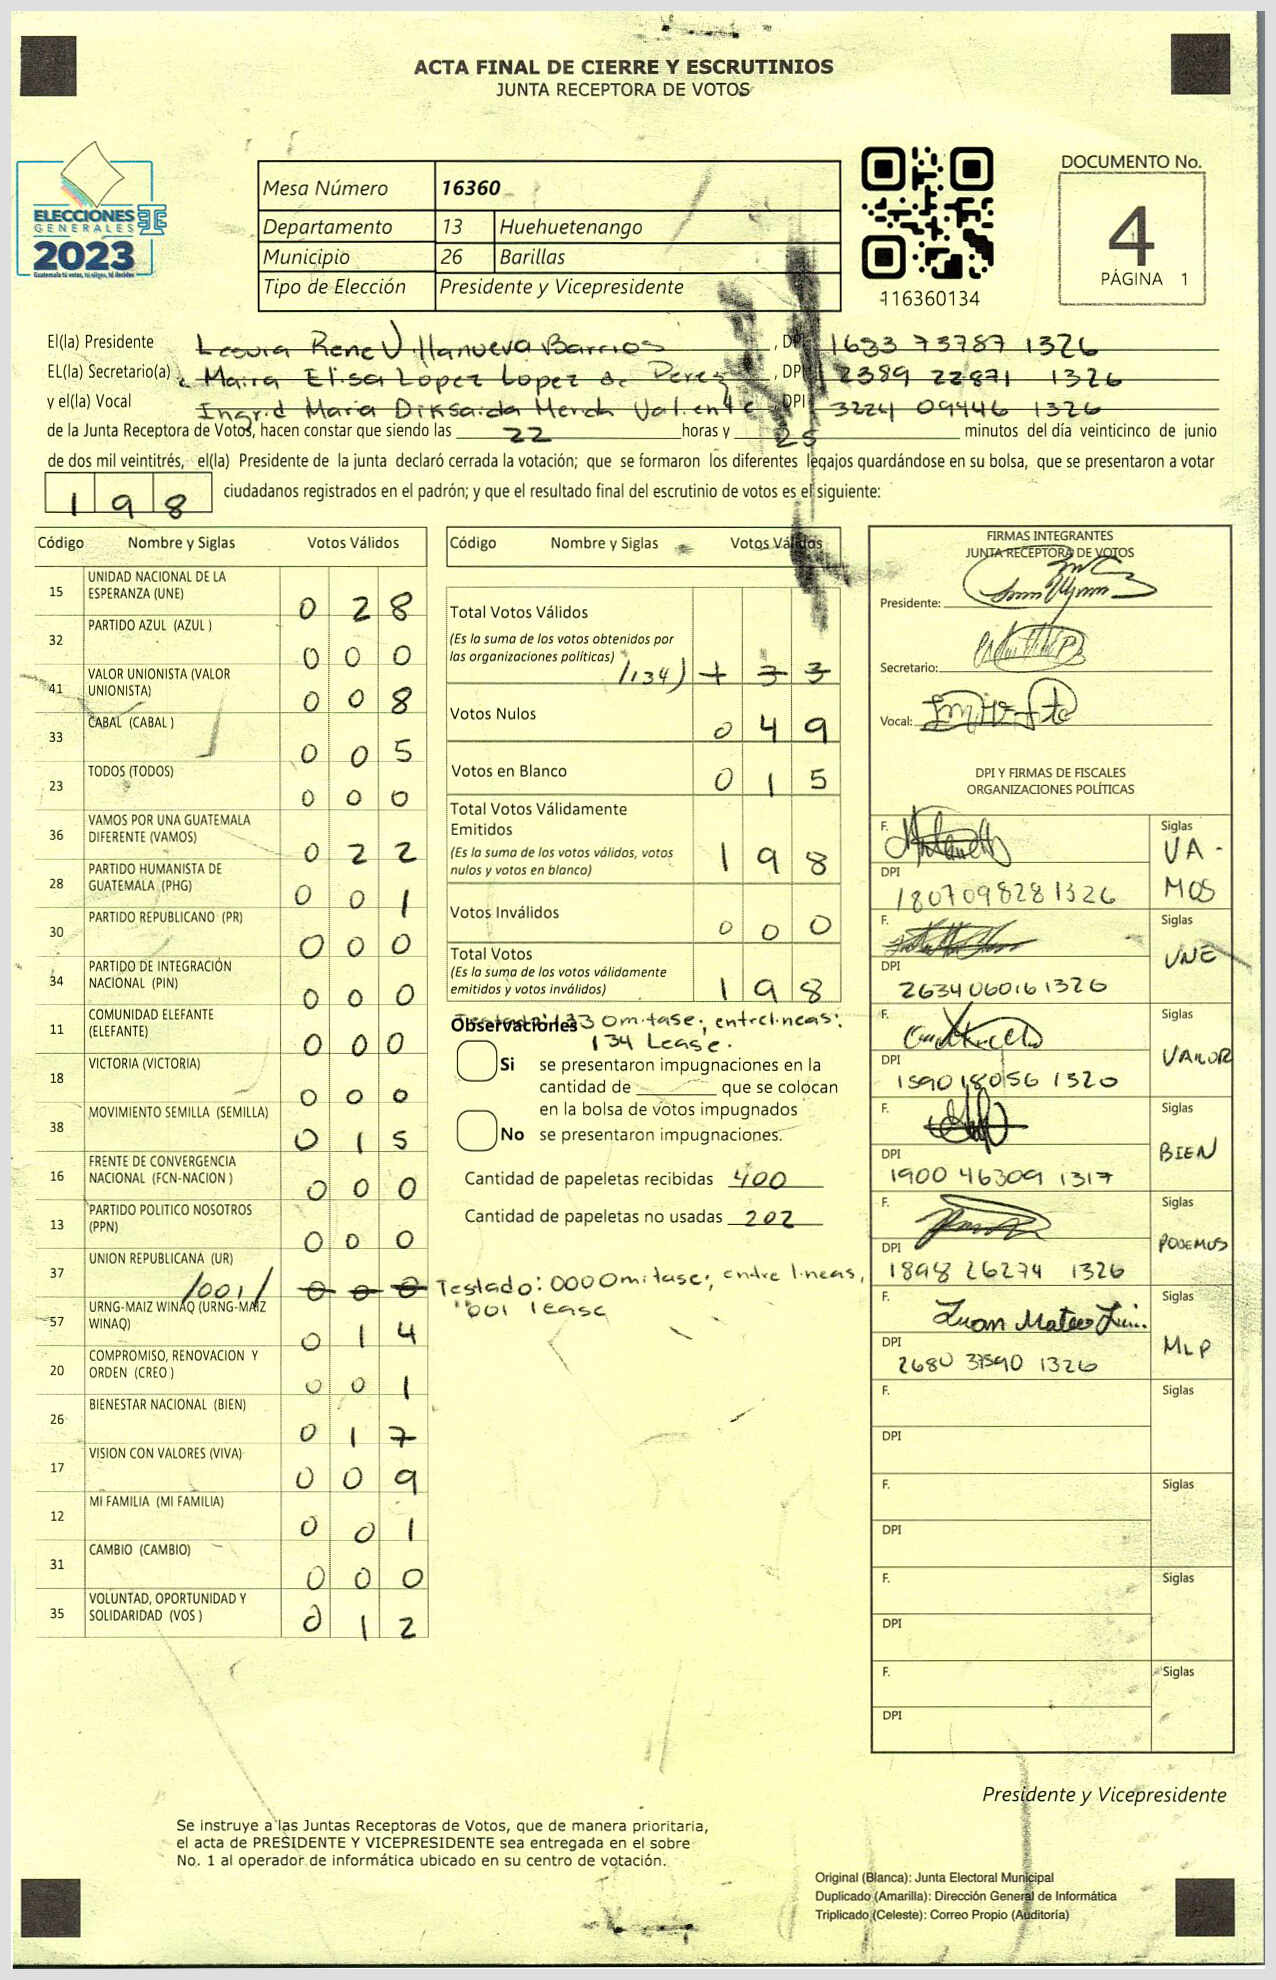 ACTA FINAL DE CIERRE Y ESCRUTINIOS
JUNTA RECEPTORA DE VOTOS
ELECCIONES
GENERALES
2023
Mesa Número 16360
Departamento 13 Huehuetenango
Municipio 26 Barillas
Tipo de Elección Presidente y Vicepresidente
116360134
DOCUMENTO No.
4
PÁGINA 1
El(la) Presidente Rene Villanueva Barrios, DPI 1633 73787 1326
EL(la) Secretario(a) Maira Elisa Lopez Lopez de Perez, DPI 2389 22871 1326
y el(la) Vocal Ingrid Maria Valiente, DPI 3224 09446 1326
de la Junta Receptora de Votos, hacen constar que siendo las 22 horas y 25 minutos del día veinticinco de junio
de dos mil veintitrés, el(la) Presidente de la junta declaró cerrada la votación; que se formaron los diferentes legajos guardándose en su bolsa, que se presentaron a votar
198 ciudadanos registrados en el padrón; y que el resultado final del escrutinio de votos es el siguiente:
Código Nombre y Siglas Votos Válidos
15 UNIDAD NACIONAL DE LA ESPERANZA (UNE) 0 2 8
32 PARTIDO AZUL (AZUL ) 0 0 0
41 VALOR UNIONISTA (VALOR UNIONISTA) 0 0 8
33 CABAL (CABAL ) 0 0 5
23 TODOS (TODOS) 0 0 0
36 VAMOS POR UNA GUATEMALA DIFERENTE (VAMOS) 0 2 2
28 PARTIDO HUMANISTA DE GUATEMALA (PHG) 0 0 1
30 PARTIDO REPUBLICANO (PR) 0 0 0
34 PARTIDO DE INTEGRACIÓN NACIONAL (PIN) 0 0 0
11 COMUNIDAD ELEFANTE (ELEFANTE) 0 0 0
18 VICTORIA (VICTORIA) 0 0 0
38 MOVIMIENTO SEMILLA (SEMILLA) 0 1 5
16 FRENTE DE CONVERGENCIA NACIONAL (FCN-NACION ) 0 0 0
13 PARTIDO POLITICO NOSOTROS (PPN) 0 0 0
37 UNION REPUBLICANA (UR) /001/ 0 0 0 Testado: 000 Omitase; entre lineas,
"001 lease
57 URNG-MAIZ WINAQ (URNG-MAIZ WINAQ) 0 1 4
20 COMPROMISO, RENOVACION Y ORDEN (CREO ) 0 0 1
26 BIENESTAR NACIONAL (BIEN) 0 1 7
17 VISION CON VALORES (VIVA) 0 0 9
12 MI FAMILIA (MI FAMILIA) 0 0 1
31 CAMBIO (CAMBIO) 0 0 0
35 VOLUNTAD, OPORTUNIDAD Y SOLIDARIDAD (VOS ) 0 1 2
Código Nombre y Siglas Votos Válidos
Total Votos Válidos
(Es la suma de los votos obtenidos por
las organizaciones políticas) /134) 1 3 3
Votos Nulos 0 4 9
Votos en Blanco 0 1 5
Total Votos Válidamente
Emitidos
(Es la suma de los votos válidos, votos
nulos y votos en blanco) 1 9 8
Votos Inválidos 0 0 0
Total Votos
(Es la suma de los votos válidamente
emitidos y votos inválidos) 1 9 8
Testado: 133 Omitase; entrelineas:
Observaciones 134 Lease.
Si se presentaron impugnaciones en la
cantidad de ________ que se colocan
en la bolsa de votos impugnados
No se presentaron impugnaciones.
Cantidad de papeletas recibidas 400
Cantidad de papeletas no usadas 202
FIRMAS INTEGRANTES
JUNTA RECEPTORA DE VOTOS
Presidente:
Secretario:
Vocal:
DPI Y FIRMAS DE FISCALES
ORGANIZACIONES POLÍTICAS
F. Siglas VA-
DPI 1807098281326 MOS
F. Siglas UNE
DPI 2634060161326
F. Siglas VALOR
DPI 1590180561320
F. Siglas BIEN
DPI 1900 46309 1317
F. Siglas PODEMOS
DPI 1898 26274 1326
F. Juan Mateo Siglas MLP
DPI 2680 37590 1326
F. Siglas
DPI
F. Siglas
DPI
F. Siglas
DPI
F. Siglas
DPI
Presidente y Vicepresidente
Se instruye a las Juntas Receptoras de Votos, que de manera prioritaria,
el acta de PRESIDENTE Y VICEPRESIDENTE sea entregada en el sobre
No. 1 al operador de informática ubicado en su centro de votación.
Original (Blanca): Junta Electoral Municipal
Duplicado (Amarilla): Dirección General de Informática
Triplicado (Celeste): Correo Propio (Auditoría)